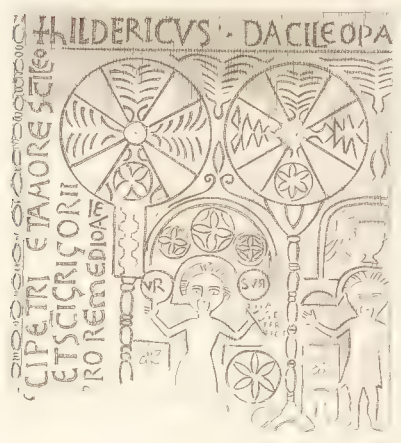 +hILDERICVS · DACILEOPA
CIPETRI ETAMORE SCILEO
ETSCIGRIGORII
RO REMEDIOA
VR